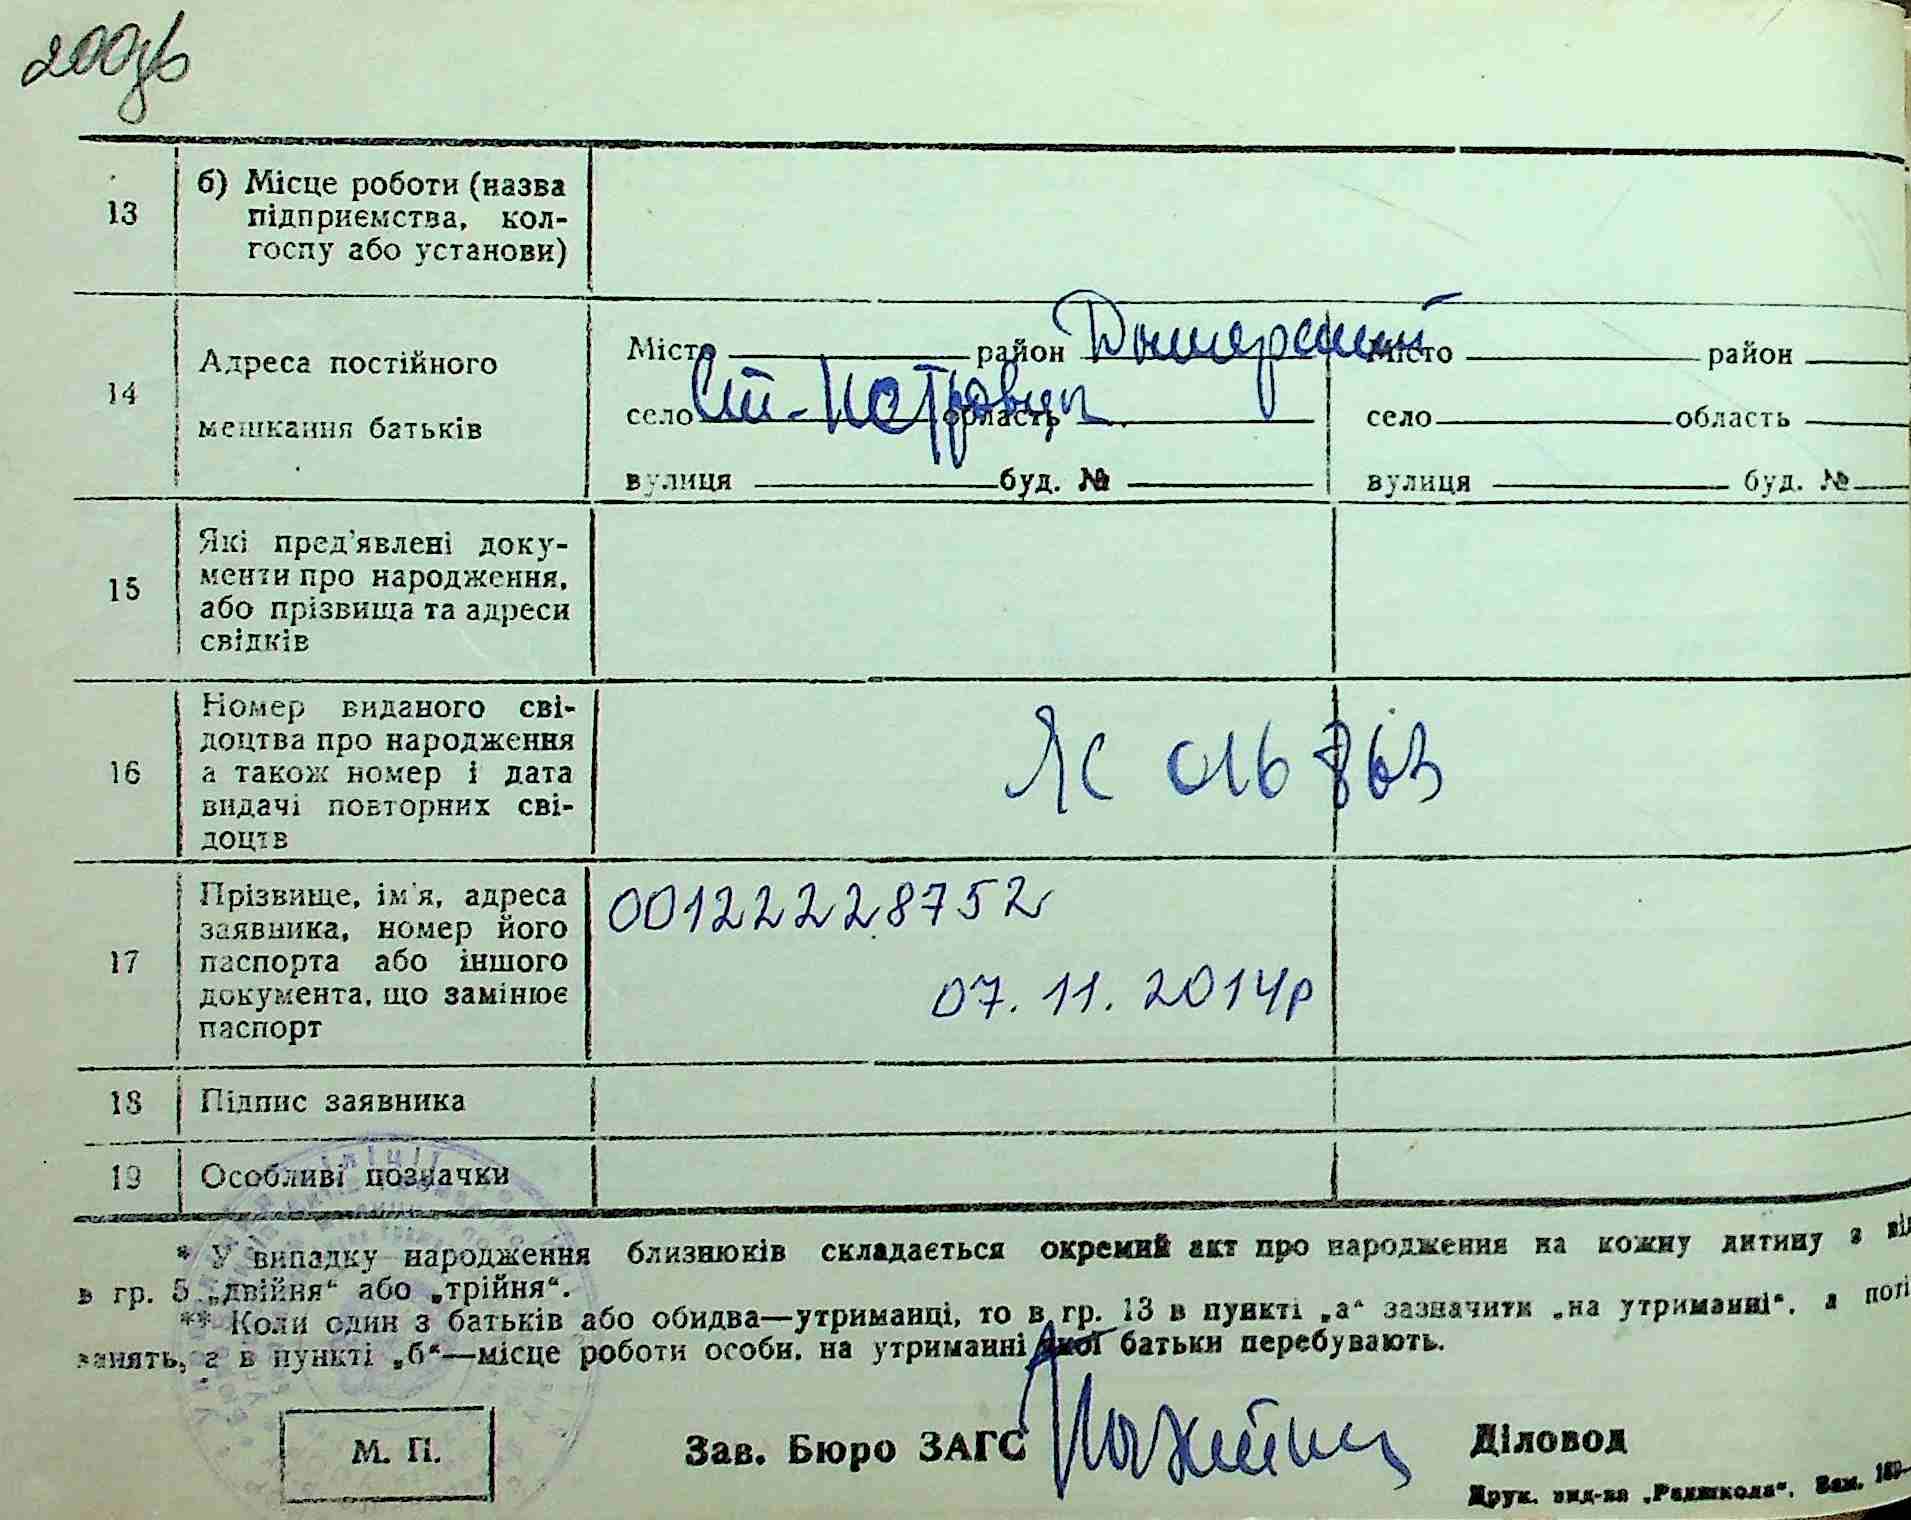 200зв
13
б) Місце роботи (назва
підприємства, кол-
госпу або установи)
14
Адреса постійного
мешкання батьків
Місто район Димерский Місто район
село Ст-Петрівці область село область
вулиця буд. № вулиця буд. №
15
Які пред'явлені доку-
менти про народження,
або прізвища та адреси
свідків
16
Номер виданого сві-
доцтва про народження
а також номер і дата
видачі повторних сві-
доцтв
ЯС 016763
17
Прізвище, ім'я, адреса
заявника, номер його
паспорта або іншого
документа, що замінює
паспорт
00122228752
07.11.2014р
18
Підпис заявника
19
Особливі позначки
* У випадку народження близнюків складається окремий акт про народження на кожну дитину з
в гр. 5 „двійня“ або „трійня“.
** Коли один з батьків або обидва—утриманці, то в гр. 13 в пункті „а“ зазначити „на утриманні“, а
занять, а в пункті „б“—місце роботи особи, на утриманні якої батьки перебувають.
М. П.
Зав. Бюро ЗАГС
Діловод
Друк. вид-ва „Радшкола“. Зам.